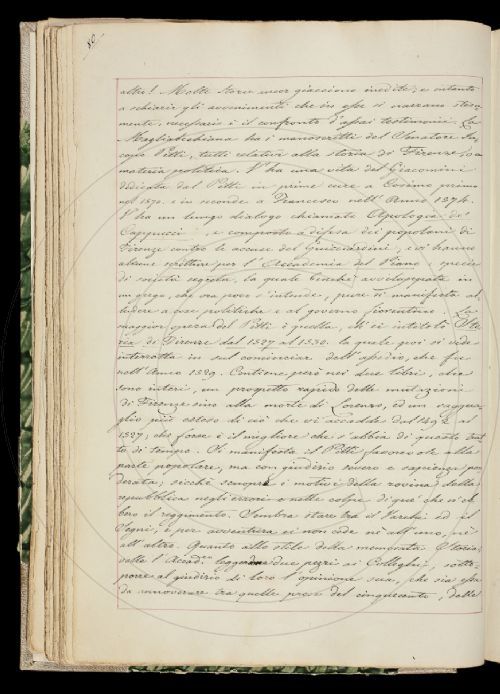 80
altri! Molte storie ancor giacciono inedite; e intanto
a schiarir gli avvenimenti che in esse si narrano stesa-
mente, necessario è il confronto d'assai testimonii. La
Magliabechiana ha i manoscritti del Senatore Ja-
copo Pitti, tutti relativi alla storia di Firenze, o a
materia politica. V'ha una vita del Giacomini
dedicata dal Pitti in prime cure a Cosimo primo
nel 1570. e in seconde a Francesco nell'Anno 1574.
V'ha un lungo dialogo chiamato Apologia de'
Cappucci, e composto a difesa dei popolani di
Firenze contro le accuse del Guicciardini, e vi hanno
alcune scritture per l'Accademia del Piano, specie
di società segreta, la quale benchè avviluppata in
un gergo, che ora poco s'intende, pure si manifesta al-
ludere a cose politiche e al governo fiorentino. La
maggior opera del Pitti è quella, ch'ei intitolò Sto-
ria di Firenze dal 1527 al 1530. la quale poi si vede
interrotta in sul cominciar dell'assedio, che fu
nell'Anno 1529. Contiene però nei due libri, che
sono interi, un prospetto rapido delle mutazioni
di Firenze sino alla morte di Lorenzo, ed un raggua-
glio più esteso di ciò che vi accadde dal 1492 al
1527; che forse è il migliore che s'abbia di questo trat-
to di tempo. Si manifesta il Pitti favorevole alla
parte popolare, ma con giudizio severo e sapienza pon-
derata; sicchè scuopre i motivi della rovina della
repubblica negli errori e nelle colpe di que' che n'eb-
bero il reggimento. Sembra stare tra il Varchi ed il
Segni, e per avventura ei non cede nè all'uno, nè
all'altro. Quanto allo stile della memorata Storia,
volle l'Accad. leggerne due pezzi ai Colleghi, sotto-
porre al giudizio di loro l'opinione sua, che sia essa
da annoverare tra quelle prose del cinquecento, delle